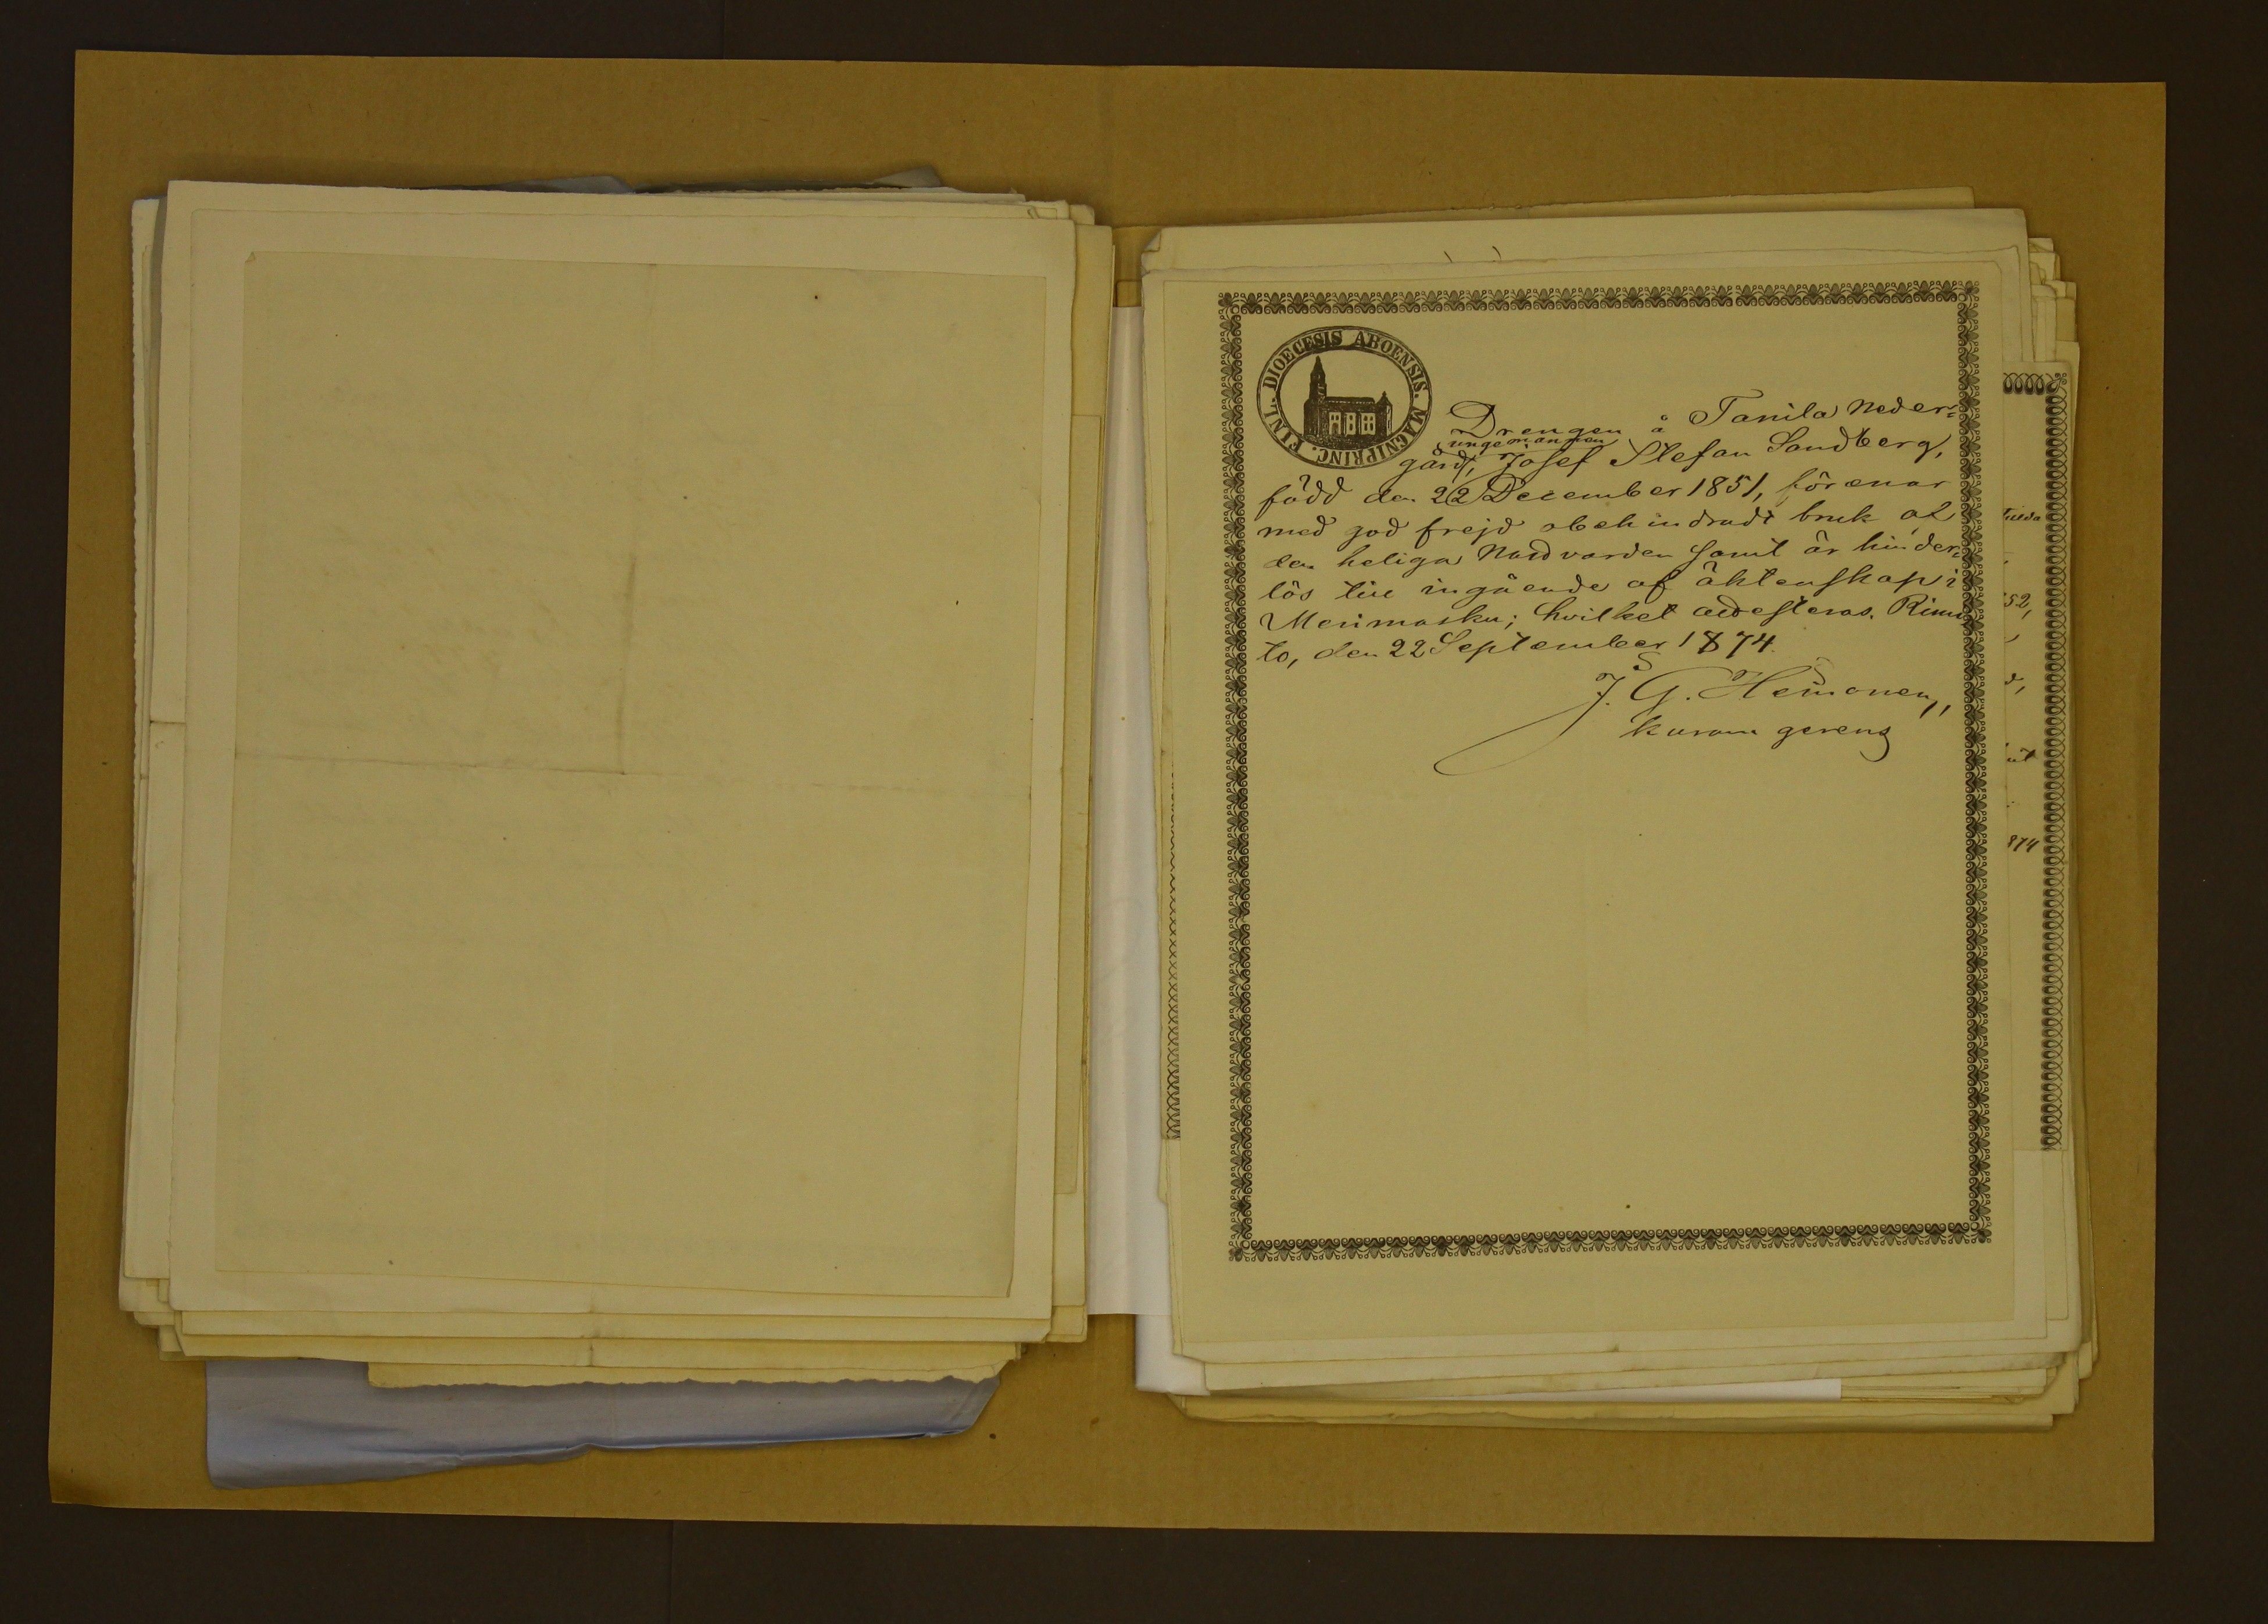 DIOECESIS ABOENSIS. MAGNIPRINC. FINL.
Drengen å Tanila Neder=
ungemannen
gård, Josef Stefan Sandberg,
född den 22 December 1851, förenar
med god frejd obehindradt bruk af
den heliga Nardvarden samt är hinder=
lös till ingående af äktenskap i
Merimasku; hvilket attesteras. Rimi=
to, den 22 September 1874.
J. G. Heinonen,
kuram gerens
52,
d,
874